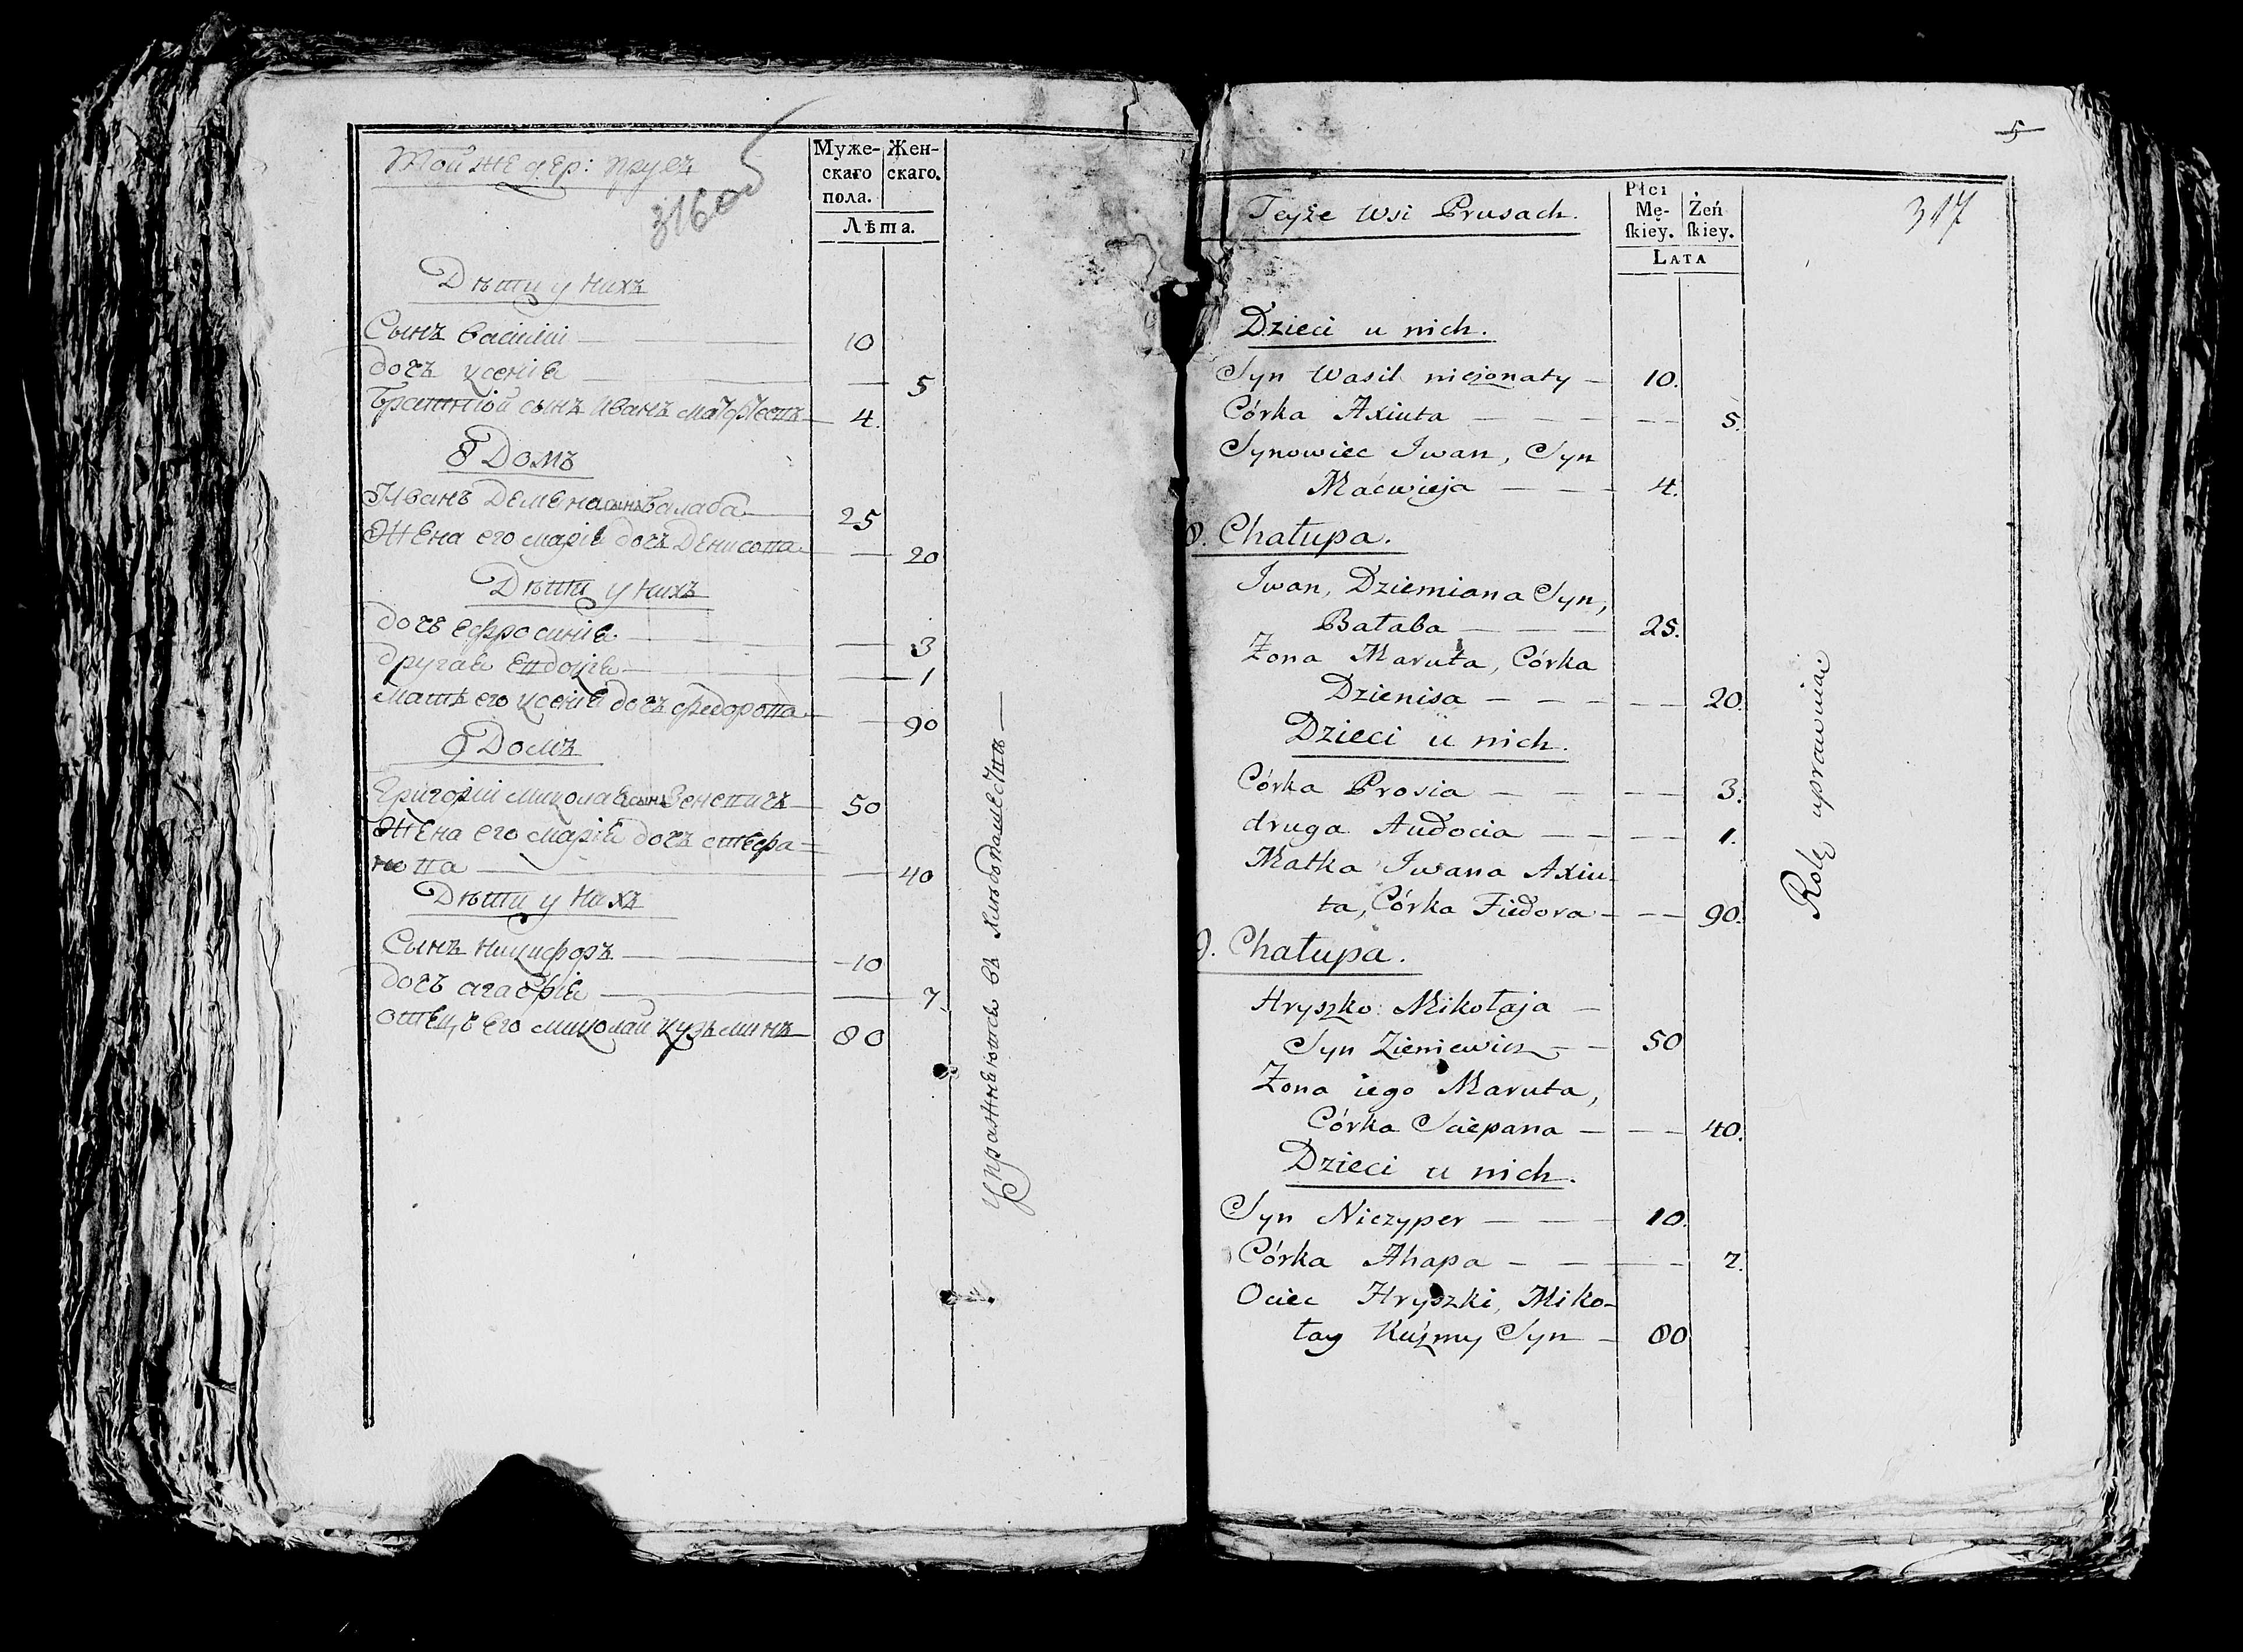 Той же дер: Прусъ
316об
Муже-
скаго
пола.
Жен-
скаго.
Лѣта.
Дѣти у нихъ
Сынъ Василій — 10
дочь Ксенія — 5
Братній сынъ Иванъ — 4.
8 Домъ
Иванъ Демена сынъ Балаба — 25
Жена его Марія дочь Денисова — 20
Дѣти у нихъ
дочь Ефросинія — 3
другая Евдокія — 1
Мать его Ксенія дочь Федорова — 90
9 Домъ
Григорій Миколая сынъ Зеневичъ — 50
Жена его Марія дочь Стефа-
нова — 40
Дѣти у нихъ
Сынъ Никифоръ — 10
дочь Агафія — 7
отецъ его Миколай Кузьминъ — 80
Упражняются въ хлебопашествѣ —
5
317
Teyże Wsi Prusach.
Płci
Mę-
ſkiey.
Żeń
ſkiey.
LATA
Dzieci u nich.
Syn Wasil nieżonaty — 10.
Córka Axiuta — 5.
Synowiec Iwan, Syn
Maćwieja — 4.
8. Chałupa.
Iwan, Dziemiana Syn,
Bałaba — 25.
Żona Maruta, Córka
Dzienisa — 20.
Dzieci u nich.
Córka Prosia — 3.
druga Audocia — 1.
Matka Iwana Axiu-
ta, Córka Fiedora — 90.
9. Chałupa.
Hryszko Mikołaja —
Syn Zieniewicz — 50
Żona iego Maruta,
Córka Sciepana — 40.
Dzieci u nich.
Syn Niczyper — 10.
Córka Ahapa — 7.
Ociec Hryszki, Miko-
łay Kuźmy Syn — 80
Rolę uprawniaią